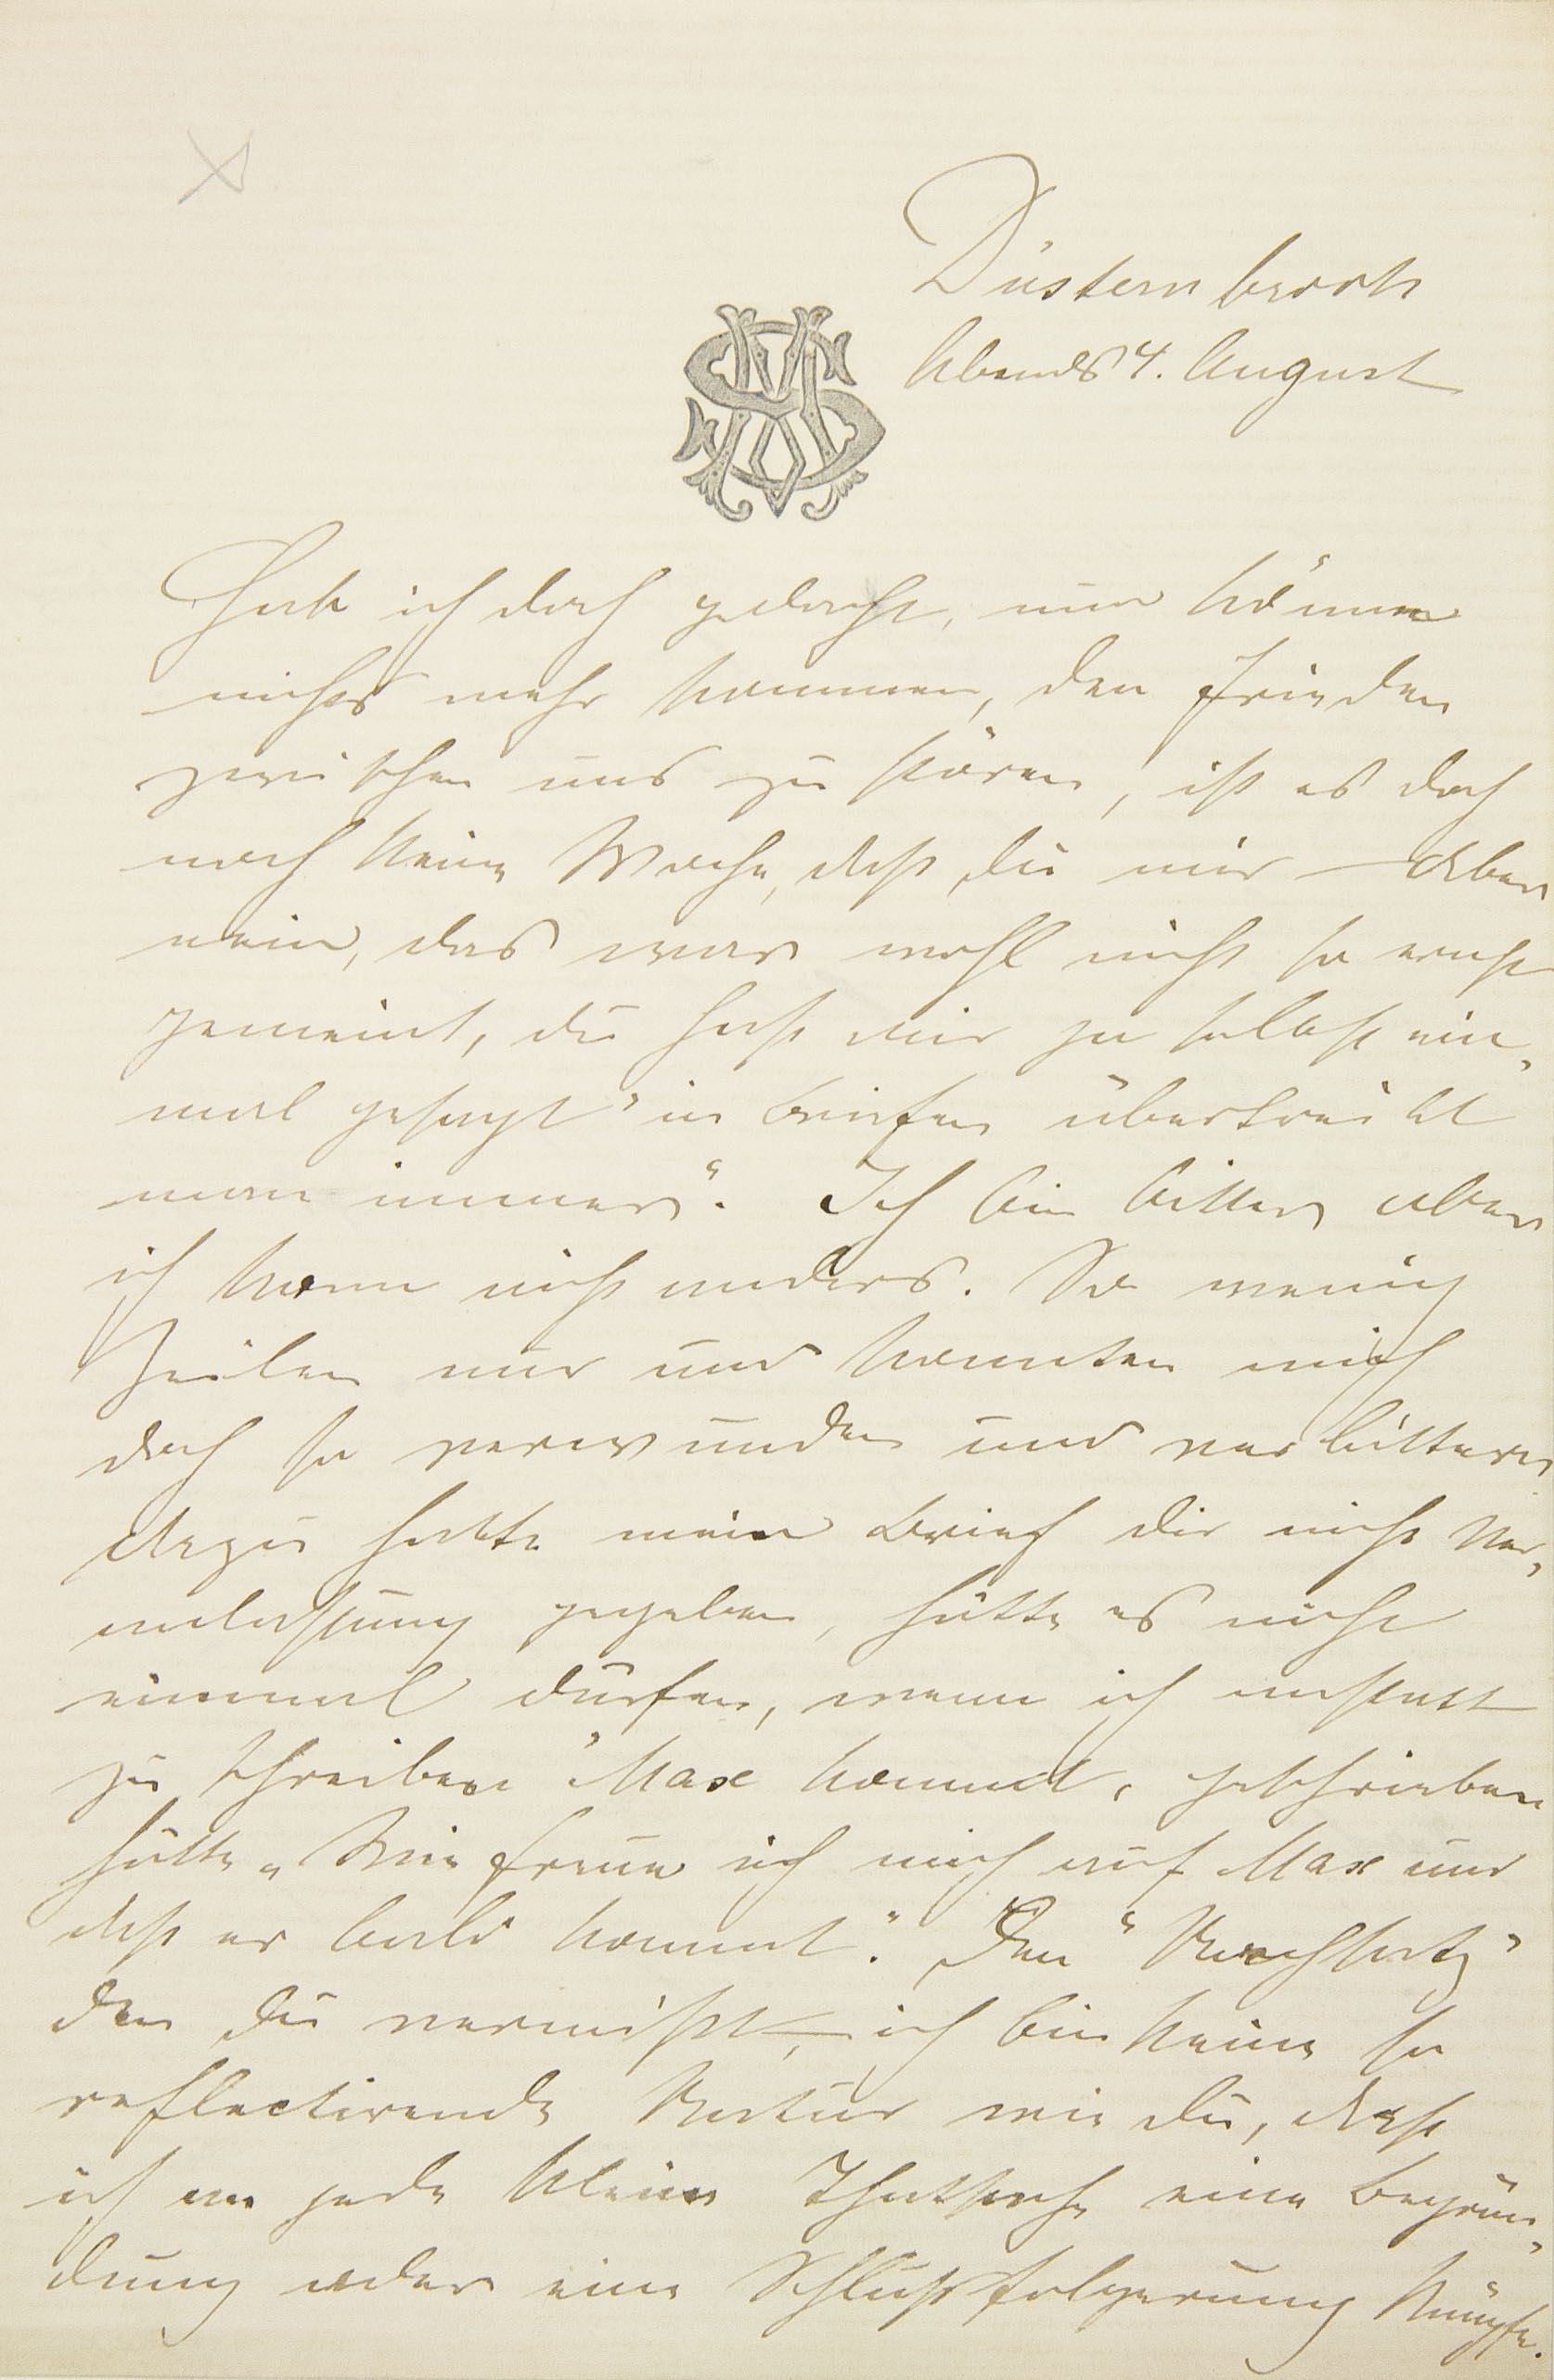 Düsternbrook
Abends 4. August
Hab ich doch gedacht, nun könne
nichts mehr kommen, den Frieden
zwischen uns zu stören, ist es doch
noch keine Woche, daß du mir – Aber
nein, das war wohl nicht so ernst
gemeint, du hast mir ja selbst ein¬
mal gesagt "in Briefen übertreibt
man immer". Ich bin bitter aber
ich kann nicht anders. So wenig
Zeilen nur und konnten mich
doch so verwunden und verbittern
dazu hatte mein Brief dir nicht Ver¬
anlassung gegeben, hätte es nicht
einmal dürfen, wenn ich anstatt
zu schreiben "Max kommt, geschrieben
hätte "Wie freue ich mich auf Max und
daß er bald kommt". Den "Nachsatz"
den du vermißt, – ich bin keine so
reflectirende Natur wie du, daß
ich an jede kleine Thatsache eine Begrün¬
dung oder eine Schlußfolgerung knüpfe.